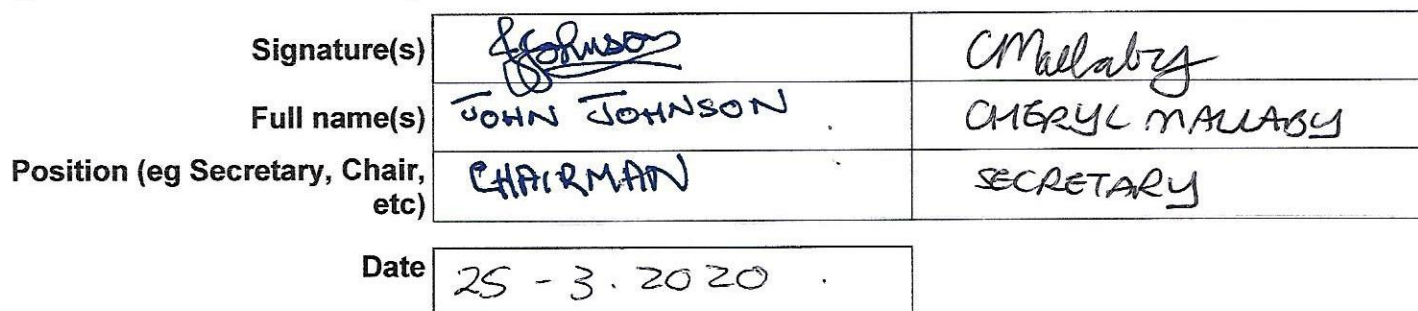 Signature(s) JJohnson CMallaby
Full name(s) JOHN JOHNSON CHERYL MALLABY
Position (eg Secretary, Chair, CHAIRMAN SECRETARY
etc)
Date 25 - 3 . 2020 .